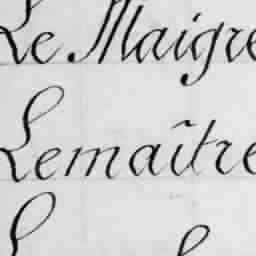 Le Maigre
Lemaître